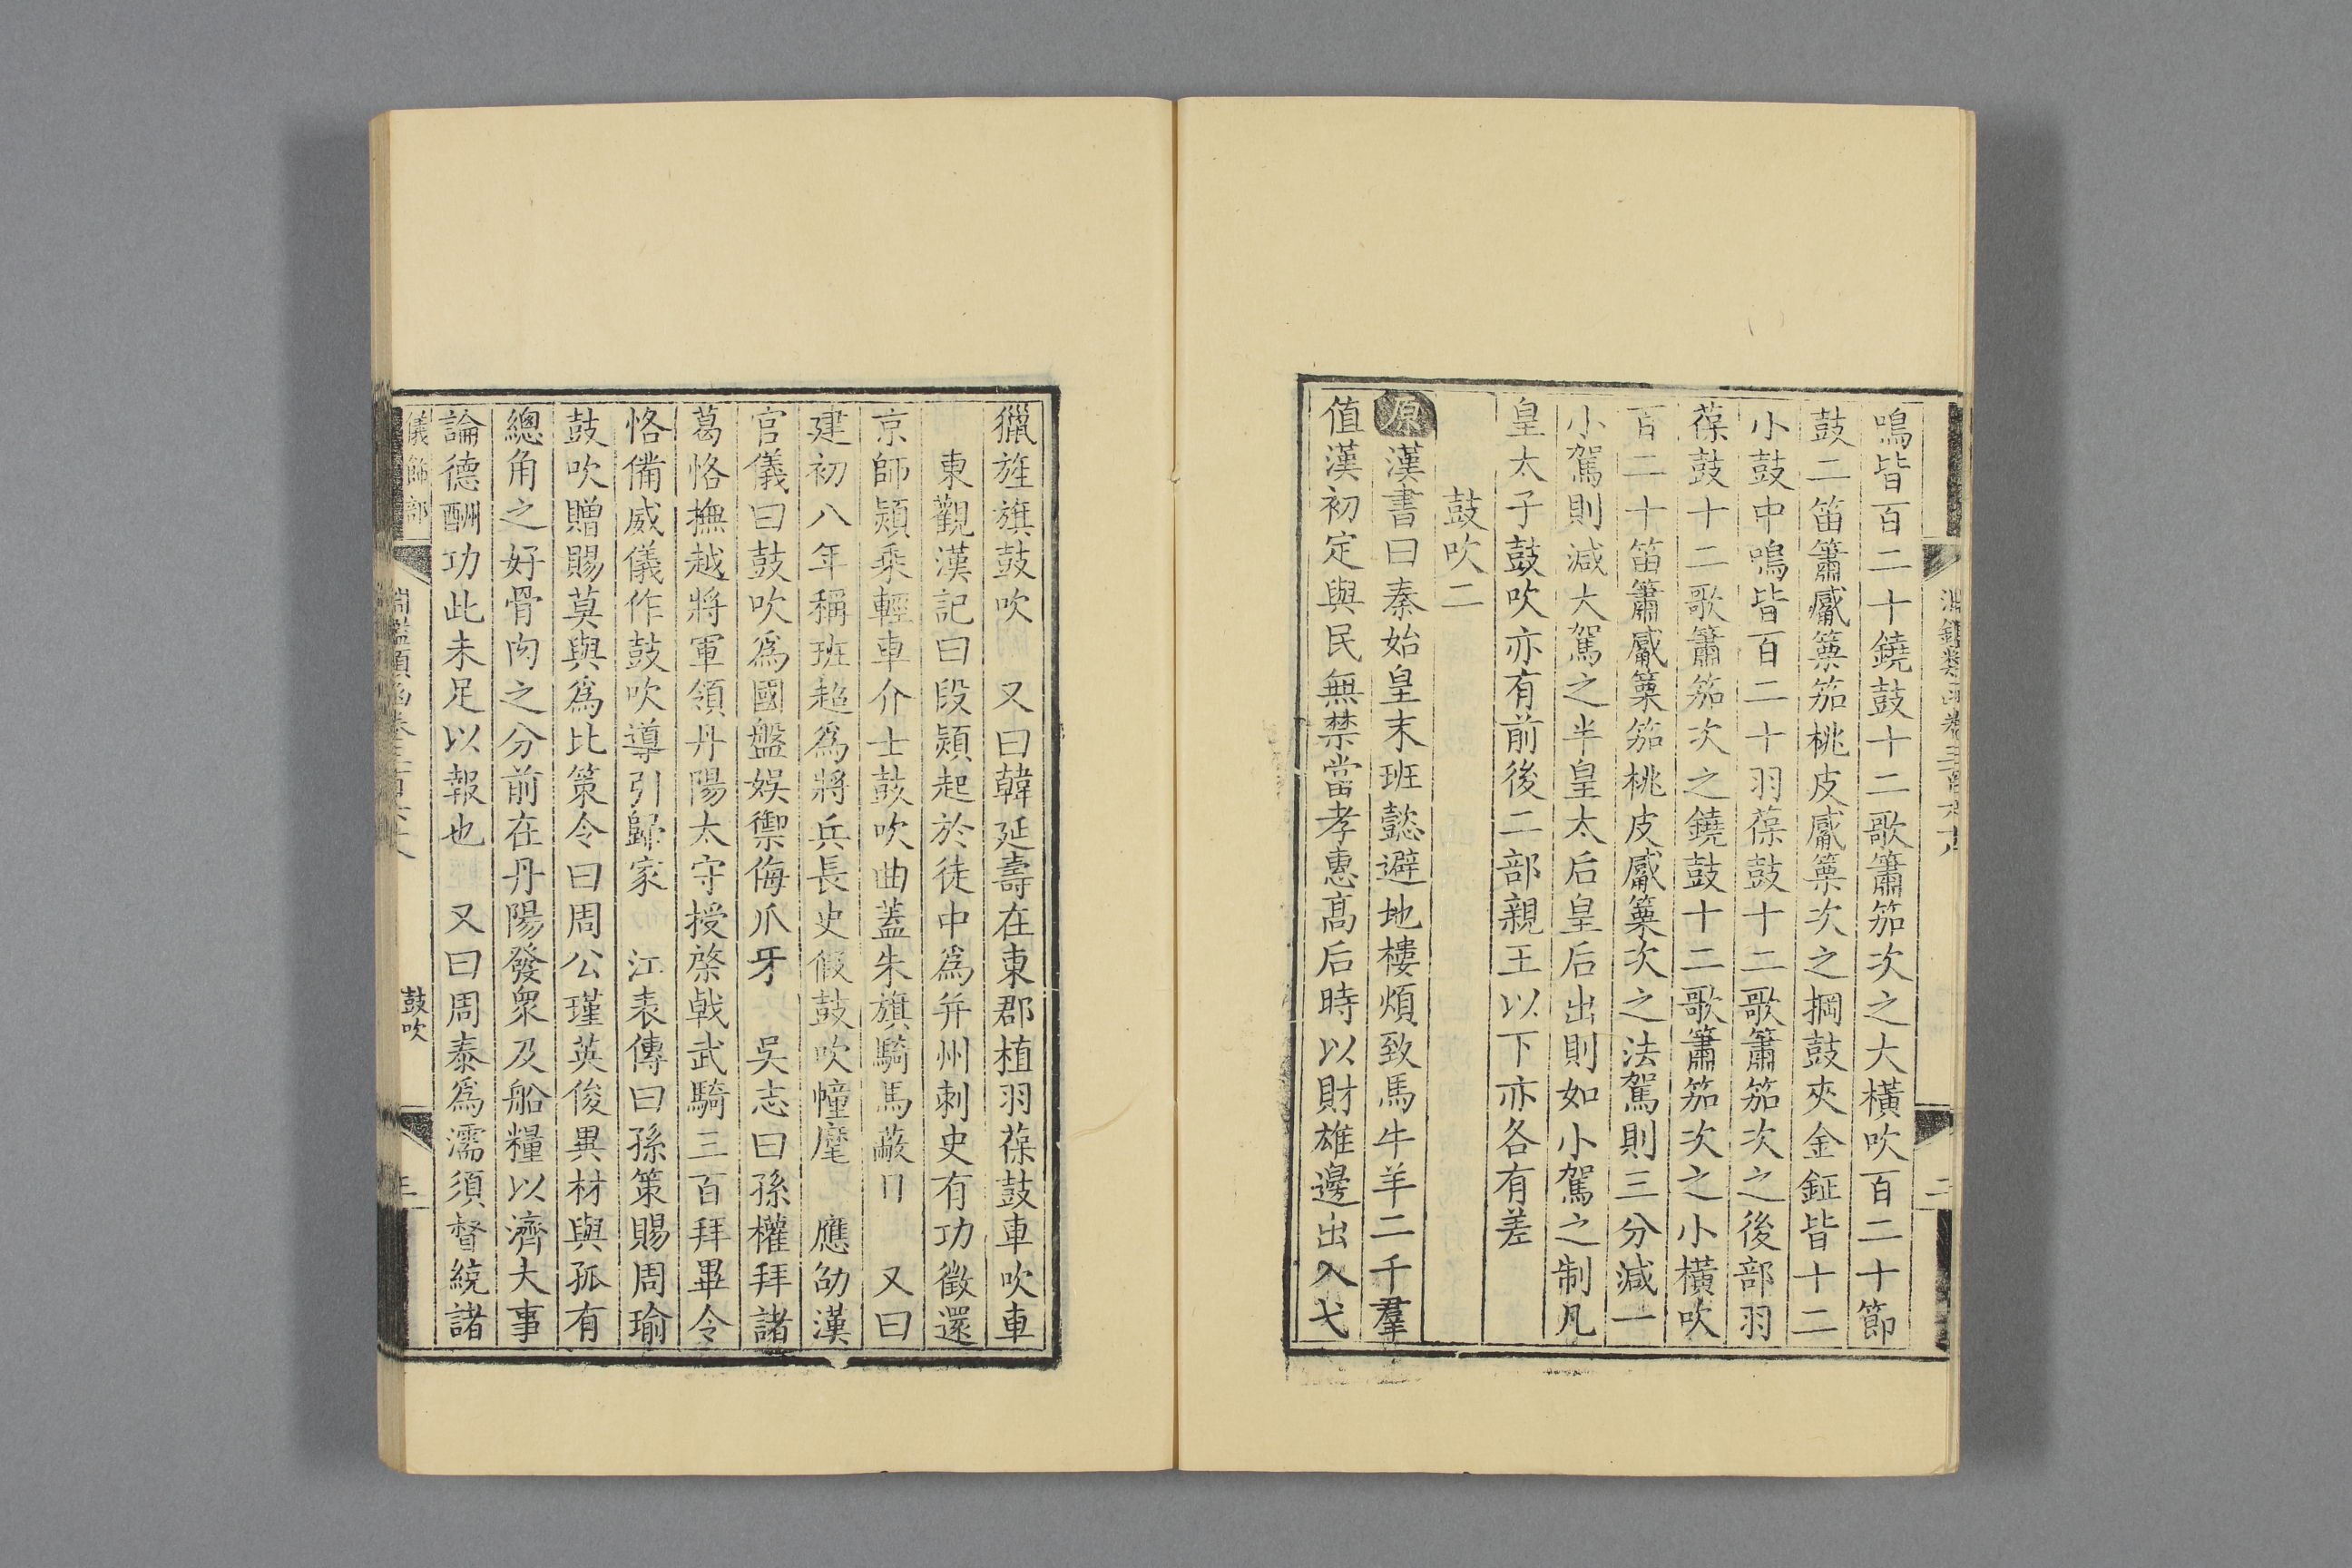 鳴皆百二十鐃鼓十二歌簫笳次之大橫吹百二十節
鼓二笛簫觱篥笳桃皮觱篥次之掆鼓夾金鉦皆十二
小鼓中鳴皆百二十羽葆鼓十二歌簫笳次之後部羽
葆鼓十二歌簫笳次之鐃鼓十二歌簫笳次之小橫吹
百二十笛簫觱篥笳桃皮觱篥次之法駕則三分減一
小駕則減大駕之半皇太后皇后出則如小駕之制凡
皇太子鼓吹亦有前後二部親王以下亦各有差
鼓吹二
原漢書曰秦始皇末班懿避地樓煩致馬牛羊二千羣
值漢初定與民無禁當孝惠高后時以財雄邊出入弋
獵旌旗鼓吹 又曰韓延壽在東郡植羽葆鼓車吹車
東觀漢記曰段熲起於徒中為并州刺史有功徵還
京師熲乘輕車介士鼓吹曲蓋朱旗騎馬蔽日 又曰
建初八年稱班超爲將兵長史假鼓吹幢麾 應劭漢
官儀曰鼓吹爲國盤娛禦侮爪牙 吳志曰孫權拜諸
葛恪撫越將軍領丹陽太守授棨戟武騎三百拜畢令
恪備威儀作鼓吹導引歸家 江表傳曰孫策賜周瑜
鼓吹贈賜莫與爲比策令曰周公瑾英俊異材與孤有
總角之好骨肉之分前在丹陽發衆及船糧以濟大事
論德酬功此未足以報也 又曰周泰爲濡須督統諸
儀飾部
鼓吹
三